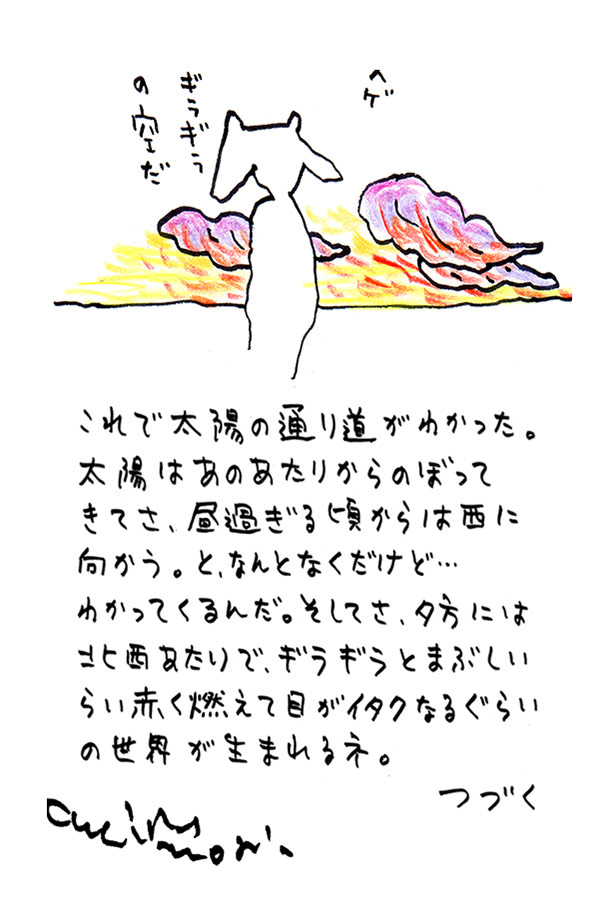 ヘゲ
ギラギラ
の空だ
これで太陽の通り道がわかった。
太陽はあのあたりからのぼって
きてさ、昼過ぎる頃からは西に
向かう。と、なんとなくだけど…
わかってくるんだ。そしてさ、夕方には
北西あたりで、ギラギラとまぶしい
らい赤く燃えて目がイタクなるぐらい
の世界が生まれるネ。
つづく